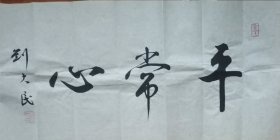 平常心
刘大民